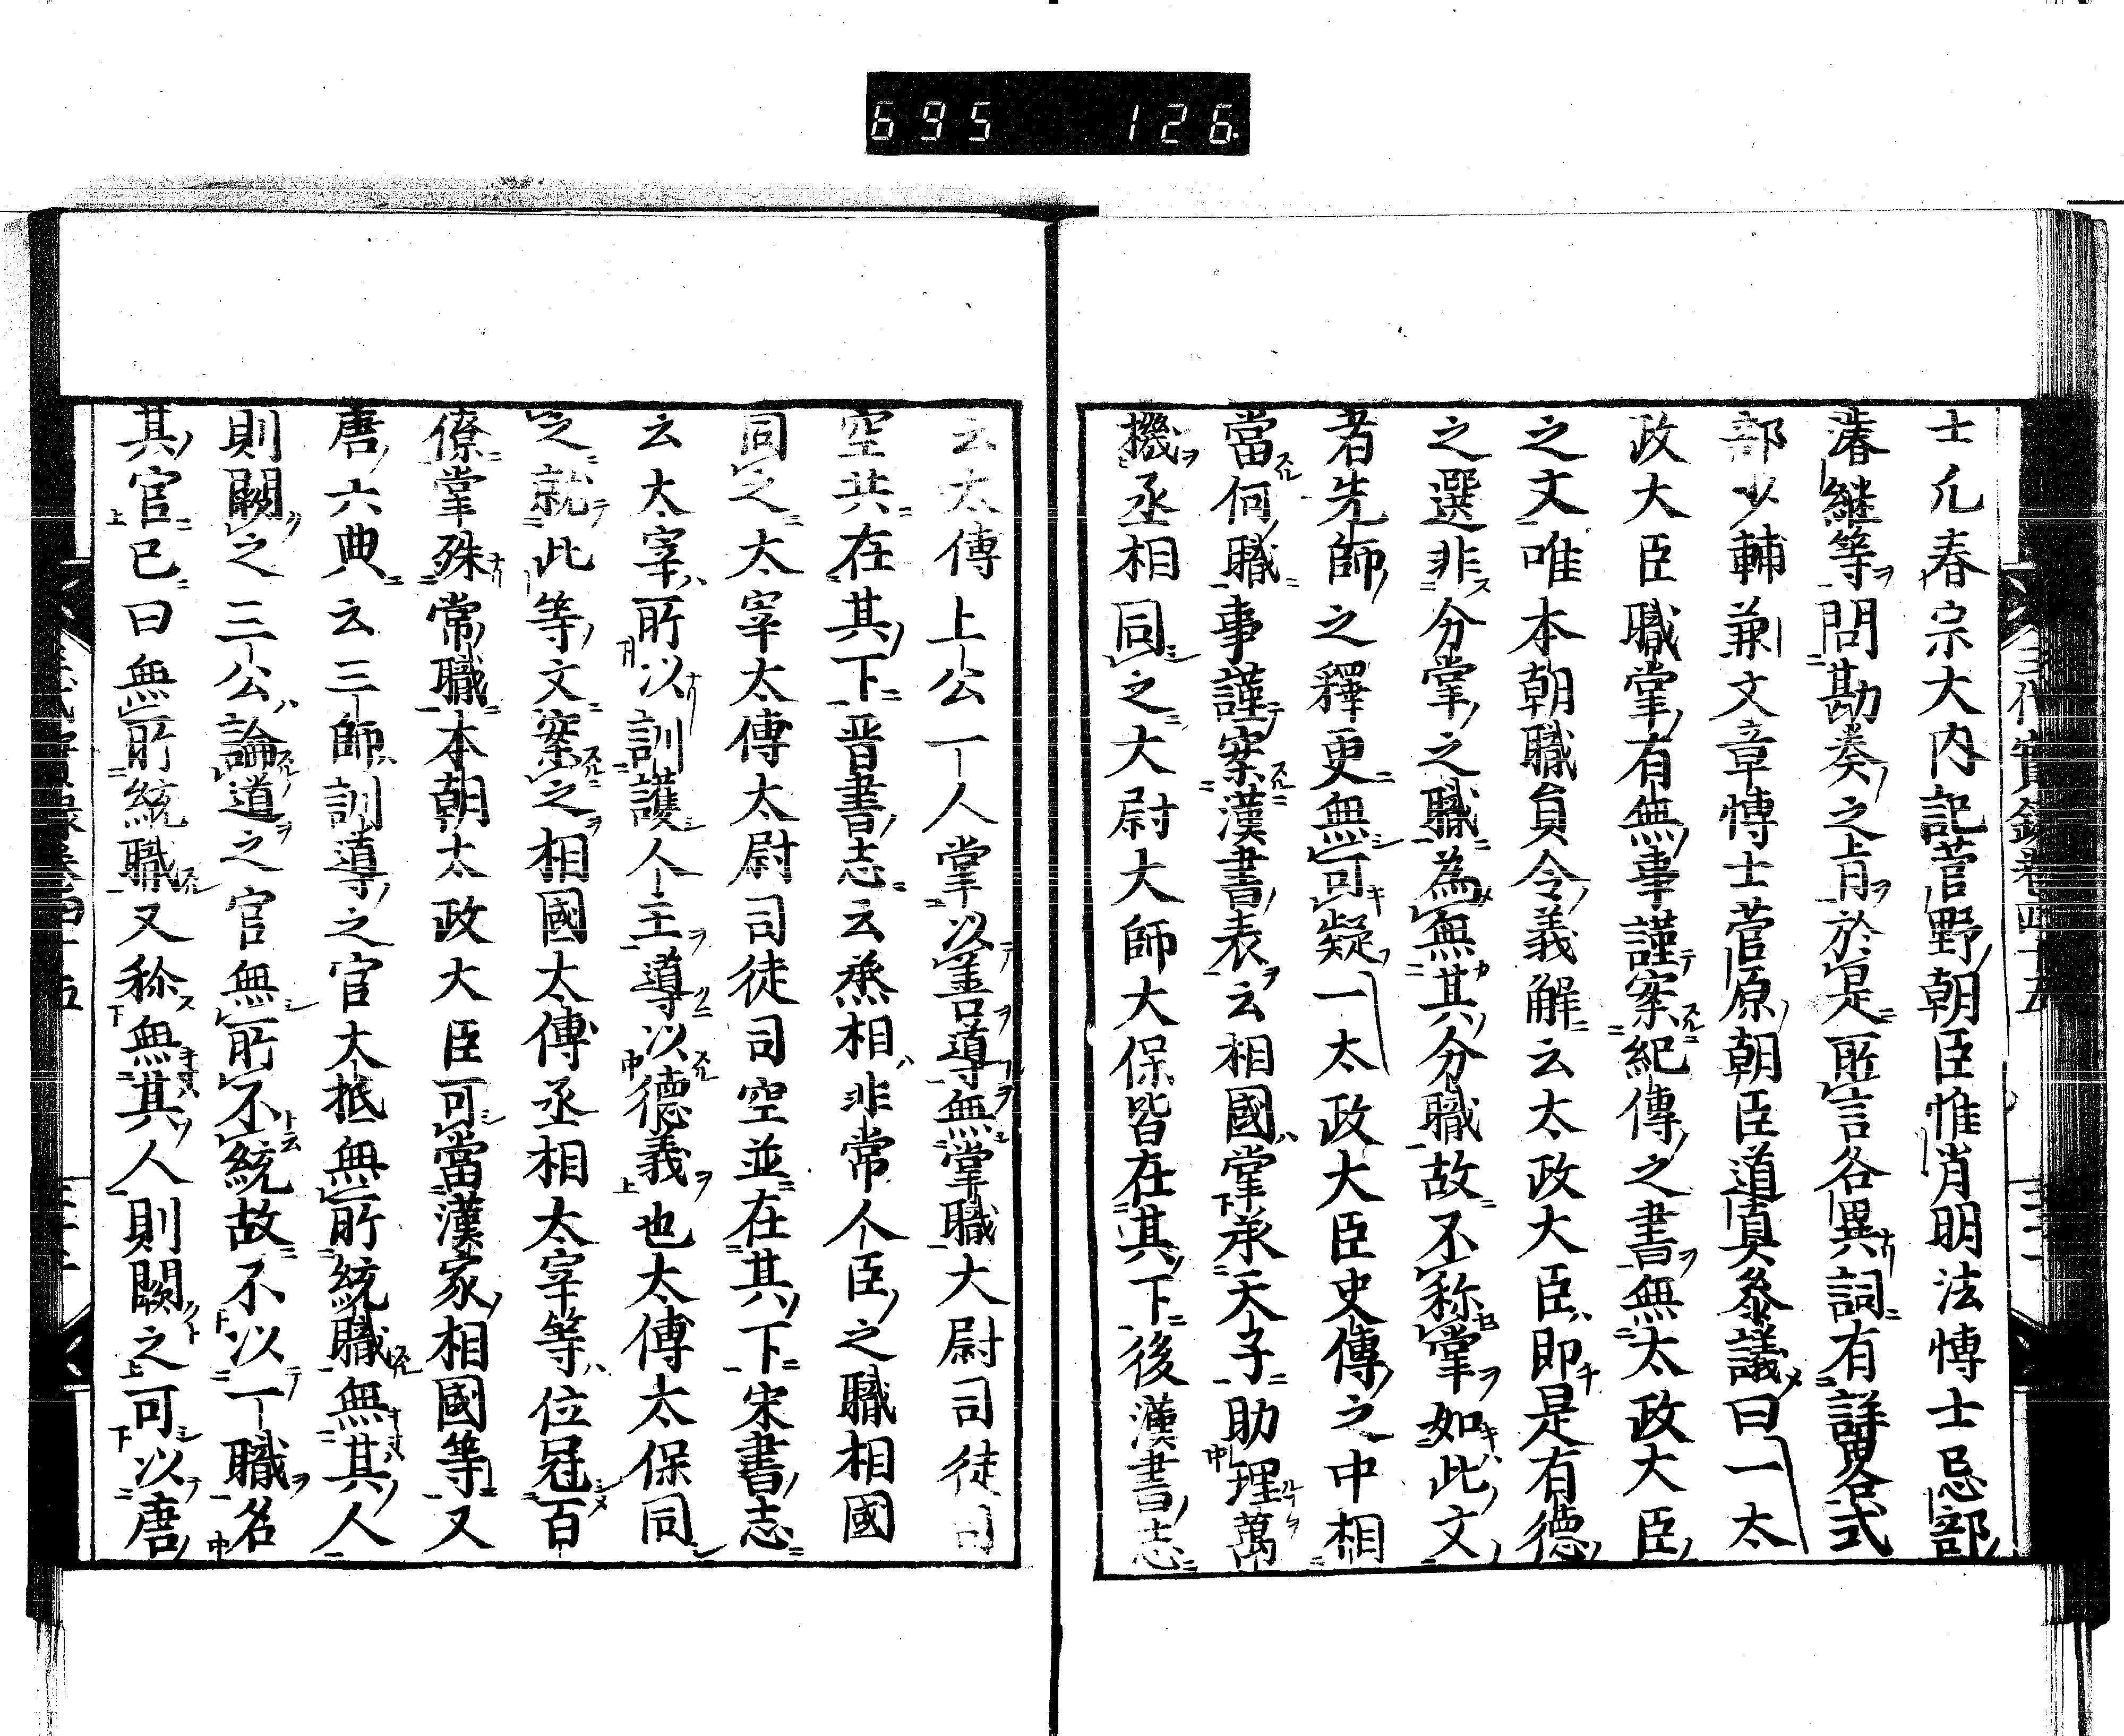 695 126
士凢春宗大内記菅野朝臣惟肖明法博士忌部
濬継等問勘奏之肯於是所言各異詞有詳畧式
部少輔兼文章博士菅原朝臣道真奏議曰一太
政大臣職掌有無事謹案紀傳之書無太政大臣
之文唯本朝職貟令義解云太政大臣即是有德
之選非分掌之職為無其分職故不称掌如此文
者先師之釋更無可疑一太政大臣史傳之中相
當何職事謹案漢書表云相國掌承天子助理萬
機丞相同之大尉大師大保皆在其下後漢書志
云太傅上公一人掌以善導無掌職大尉司徒司
空共在其下晋書志云烝相非常人臣之職相國
同之太宰太傅太尉司徒司空並在其下宋書志
云太宰所以訓護人主導以德義也太傅太保同
之就此等文案之相國太傅丞相太宰等位冠百
僚掌殊常職本朝太政大臣可當漢家相國等又
唐六典云三師訓導之官大抵無所統職無其人
則闕之三公論道之官無所不統故不以一職名
其官已曰無所統職又称無其人則闕之可以唐
三代實録卷四十五